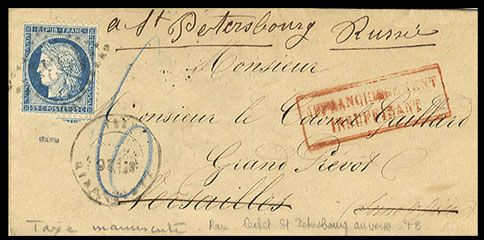 a St Petersbourg Russie
REPUB. FRANC.
25 C. POSTES 25 C.
Monsieur
AFFRANCHISSEMENT
INSUFFISANT
Monsieur le Colonel Gaillard
Grand Prevot
Versailles
Taxe manuscrite Rare Cachet St Petersbourg au verso TB